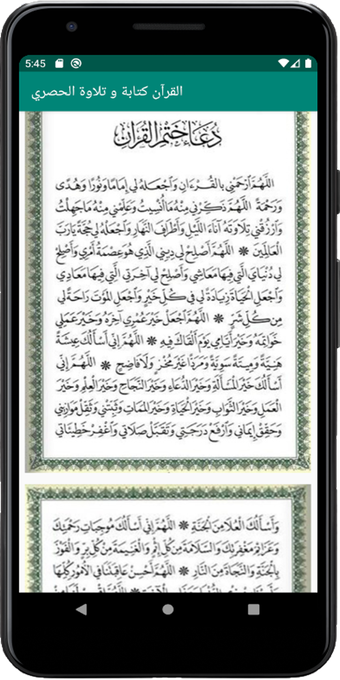 5:45
القرآن كتابة و تلاوة الحصري
دُعَاءُ خَتْمِ القُرْآنِ
اللَّهُمَّ ارْحَمْنِي بِالقُرْءَانِ وَاجْعَلهُ لِي إِمَامًا وَنُورًا وَهُدًى
وَرَحْمَةً اللَّهُمَّ ذَكِّرْنِي مِنْهُ مَا نُسِّيتُ وَعَلِّمْنِي مِنْهُ مَا جَهِلْتُ
وَارْزُقْنِي تِلَاوَتَهُ آنَاءَ اللَّيْلِ وَأَطْرَافَ النَّهَارِ وَاجْعَلْهُ لِي حُجَّةً يَارَبَّ
العَالَمِينَ * اللَّهُمَّ أَصْلِحْ لِي دِينِي الَّذِي هُوَ عِصْمَةُ أَمْرِي وَأَصْلِحْ
لِي دُنْيَايَ الَّتِي فِيهَا مَعَاشِي وَأَصْلِحْ لِي آخِرَتِي الَّتِي فِيهَا مَعَادِي
وَاجْعَلِ الحَيَاةَ زِيَادَةً لِي فِي كُلِّ خَيْرٍ وَاجْعَلِ المَوْتَ رَاحَةً لِي
مِنْ كُلِّ شَرٍّ * اللَّهُمَّ اجْعَلْ خَيْرَ عُمْرِي آخِرَهُ وَخَيْرَ عَمَلِي
خَوَاتِمَهُ وَخَيْرَ أَيَّامِي يَوْمَ أَلْقَاكَ فِيهِ * اللَّهُمَّ إِنِّي أَسْأَلُكَ عِيشَةً
هَنِيَّةً وَمِيتَةً سَوِيَّةً وَمَرَدًّا غَيْرَ مُخْزٍ وَلَا فَاضِحٍ * اللَّهُمَّ إِنِّي
أَسْأَلُكَ خَيْرَ المَسْأَلَةِ وَخَيْرَ الدُّعَاءِ وَخَيْرَ النَّجَاحِ وَخَيْرَ العِلْمِ وَخَيْرَ
العَمَلِ وَخَيْرَ الثَّوَابِ وَخَيْرَ الحَيَاةِ وَخَيْرَ المَمَاتِ وَثَبِّتْنِي وَثَقِّلْ مَوَازِينِي
وَحَقِّقْ إِيمَانِي وَارْفَعْ دَرَجَتِي وَتَقَبَّلْ صَلَاتِي وَاغْفِرْ خَطِيئَاتِي
وَأَسْأَلُكَ العُلَا مِنَ الجَنَّةِ * اللَّهُمَّ إِنِّي أَسْأَلُكَ مُوجِبَاتِ رَحْمَتِكَ
وَعَزَائِمَ مَغْفِرَتِكَ وَالسَّلَامَةَ مِنْ كُلِّ إِثْمٍ وَالغَنِيمَةَ مِنْ كُلِّ بِرٍّ وَالفَوْزَ
بِالجَنَّةِ وَالنَّجَاةَ مِنَ النَّارِ * اللَّهُمَّ أَحْسِنْ عَاقِبَتَنَا فِي الأُمُورِ كُلِّهَا